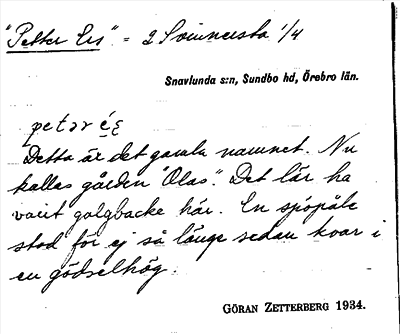 "Petter Ers" = 2 Svinnersta 1/4
Snavlunda s:n, Sundbo hd, Örebro län.
petər
Detta är det gamla namnet. Nu
kallas gården "Olas". Det lär ha
varit galgbacke här. En spöpåle
stod för ej så länge sedan kvar i
en gödselhög.
GÖRAN ZETTERBERG 1934.